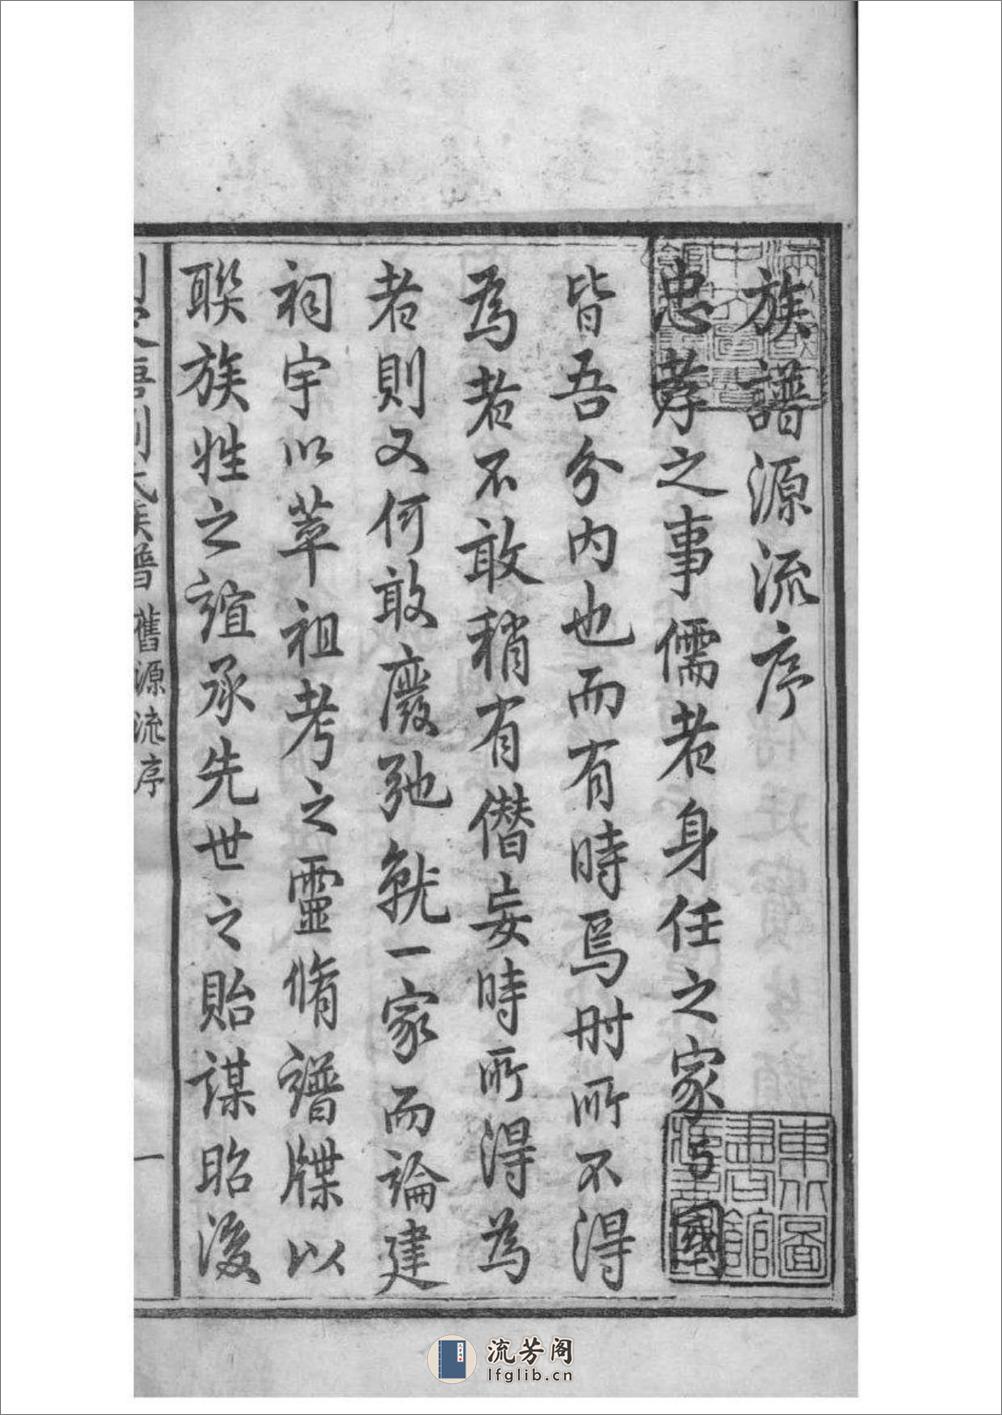 族譜源流序
忠孝之事儒者身任之家与國
皆吾分内也而有時焉時所不得
為者不敢稍有僭妄時所得為
者則又何敢廢弛就一家而論建
祠宇以萃祖考之靈脩譜牒以
聯族姓之誼承先世之貽謀昭後
劉氏族譜 舊源流序 一
東北圖書館
流芳阁
lfglib.cn